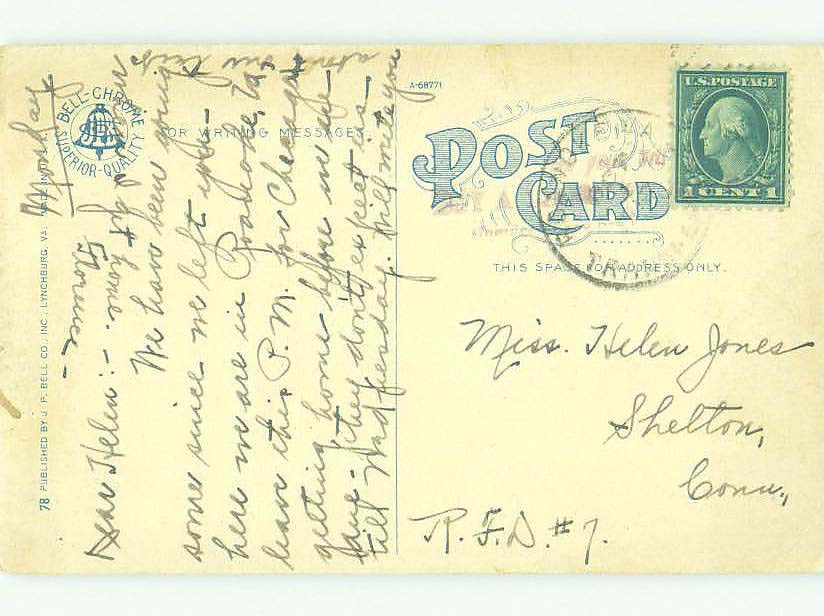 Monday
Dear Helen:-
We have been going
some since we left you-
here we are in Roanoke, Va
leave this P.M. for Chicago
getting home before we
they don't expect us-
till Wednesday. Will write you
at home
Florence
BELL-CHROME
SUPERIOR-QUALITY
FOR WRITING MESSAGES
78 PUBLISHED BY J. P. BELL CO., INC., LYNCHBURG, VA.
A-68771
POST
CARD
U.S. POSTAGE
1 CENT 1
THIS SPACE FOR ADDRESS ONLY.
Miss. Helen Jones
Shelton,
Conn.,
R.F.D. #7.